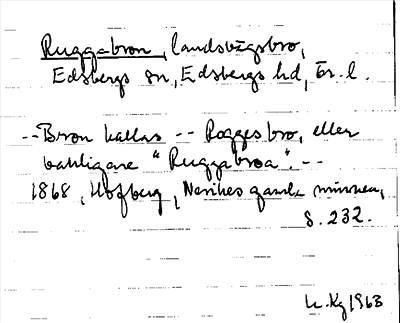 Ruggabron, landsvägsbro,
Edsbergs sn, Edsbergs hd, Ör. l.
-- Bron kallas -- Rogges bro, eller
vanligare "Ruggabroa". --
1868, Hofberg, Nerikes gamla minnen,
s. 232.
1963